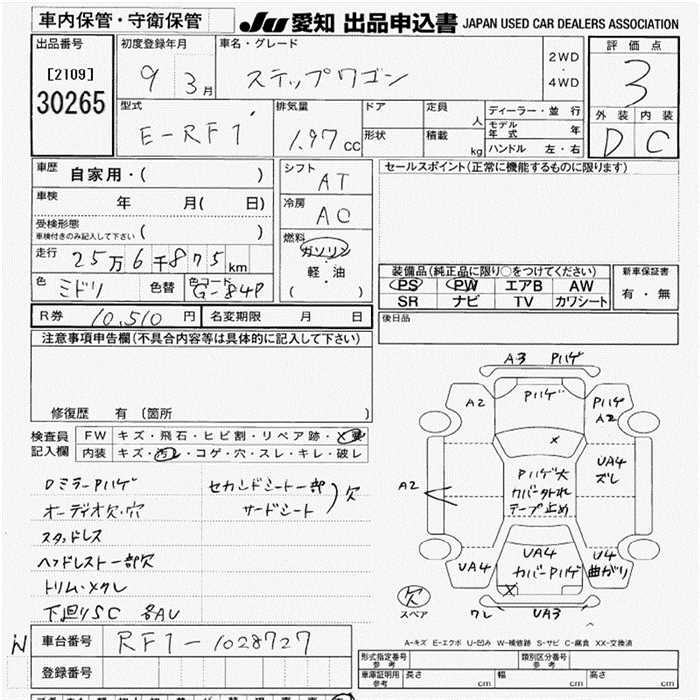 車内保管・守衛保管 JU 愛知 出品申込書 JAPAN USED CAR DEALERS ASSOCIATION
出品番号 初度登録年月 車名・グレード 評価点
[2109] 9 3月 ステップワゴン 2WD ・ 4WD 3
30265 型式 排気量 ドア 定員 人 ディーラー・並行 外装 内装
E-RF1 1.97 cc 形状 積載 kg モデル年式 年 D C
ハンドル 左・右
車歴 自家用・( ) シフト AT セールスポイント(正常に機能するものに限ります)
車検 年 月( 日) 冷房 AC
受検形態 車検付きのみ記入して下さい ( ) 燃料 ガソリン
走行 25万6千875km 軽・油 装備品(純正品に限り○をつけてください) 新車保証書
色 ミドリ 色替 色コード G-84P ( ) PS PW エアB AW 有・無
SR ナビ TV カワシート
R券 10,510 円 名変期限 月 日 後日品
注意事項申告欄(不具合内容等は具体的に記入して下さい)
修復歴 有 (箇所 )
検査員 FW キズ・飛石・ヒビ割・リペア跡・X要
記入欄 内装 キズ・汚レ・コゲ・穴・スレ・キレ・破レ
A3 Pハゲ
A2 Pハゲ Pハゲ A2
X
A2 Pハゲ大 カバー外れ テープ止め UA4 ズレ
UA4 UA4 カバーPハゲ U4 曲がり
X
欠 スペア ワレ UA3
DミラーPハゲ セカンドシート一部 欠
オーディオ欠・穴 サードシート
スタッドレス
ヘッドレスト一部欠
トリム・メクレ
下廻りSC 各AU
A-キズ E-エクボ U-凹み W-補修跡 S-サビ C-腐食 XX-交換済
車台番号 RF1-1028727
登録番号
形式指定番号 参考 類別区分番号 参考
車庫証明用 参考 長さ cm 幅 cm 高さ cm